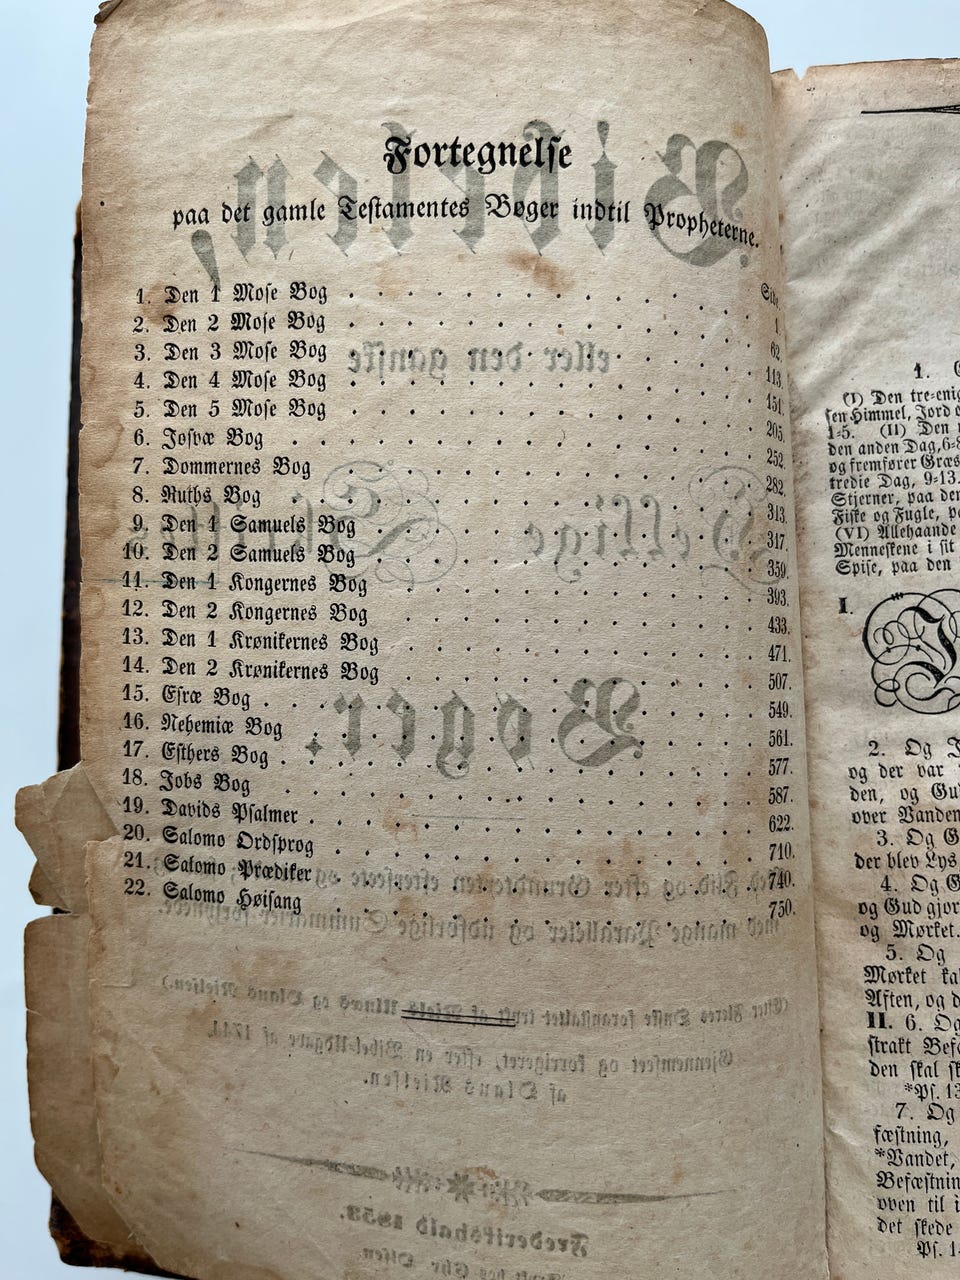 Fortegnelse
paa det gamle Testamentes Bøger indtil Propheterne.
Side.
1. Den 1 Mose Bog . . . 1.
2. Den 2 Mose Bog . . . 62.
3. Den 3 Mose Bog . . . 113.
4. Den 4 Mose Bog . . . 151.
5. Den 5 Mose Bog . . . 205.
6. Josvæ Bog . . . 252.
7. Dommernes Bog . . . 282.
8. Ruths Bog . . . 313.
9. Den 1 Samuels Bog . . . 317.
10. Den 2 Samuels Bog . . . 359.
11. Den 1 Kongernes Bog . . . 393.
12. Den 2 Kongernes Bog . . . 433.
13. Den 1 Krønikernes Bog . . . 471.
14. Den 2 Krønikernes Bog . . . 507.
15. Esræ Bog . . . 549.
16. Nehemiæ Bog . . . 561.
17. Esthers Bog . . . 577.
18. Jobs Bog . . . 587.
19. Davids Psalmer . . . 622.
20. Salomo Ordsprog . . . 710.
21. Salomo Prædiker . . . 740.
22. Salomo Høisang . . . 750.
Bibelen,
eller den ganske
Hellige Skriftes
Bøger.
med mange Paralleler og udførlige Summarier forsynede.
Gjennemseet og korrigeret, efter en Bibel-Udgave af 1744
af Olaus Nielsen.
Frederikshald 1853.
1.
(I) Den tre-enig
sen Himmel, Jord o
1-5. (II) Den
den anden Dag, 6-8
og fremfører Græs
tredie Dag, 9-13.
Stjerner, paa den
Fiske og Fugle, pa
(VI) Allehaande
Menneskene i sit
Spise, paa den
I.
2. Og J
og der var
den, og Gu
over Vanden
3. Og G
der blev Lys
4. Og G
og Gud gjor
og Mørket.
5. Og
Mørket ka
Aften, og d
II. 6. Og
strakt Bef
den skal sk
*Ps. 13
7. Og
fæstning,
*Vandet,
Befæstnin
oven til i
det skede
Ps. 14